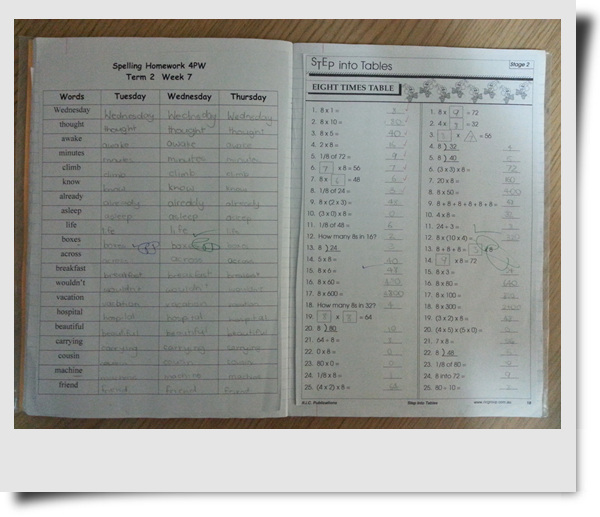 Spelling Homework 4PW
Term 2 Week 7
Words Tuesday Wednesday Thursday
Wednesday Wednesday Wednesday Wednesday
thought thought thought thought
awake awake awake awake
minutes minutes minutes minute
climb climb climb climb
know know know know
already already already already
asleep asleep asleep asleep
life life life life
boxes boxes boxes boxes
across across across across
breakfast breakfast breakfast breakfast
wouldn't wouldn't wouldn't wouldn't
vacation vacation vacation vacation
hospital hospital hospital hospital
beautiful beautiful beautiful beautiful
carrying carrying carrying carrying
cousin cousin cousin
machine machine machine machine
friend friend friend friend
STEP into Tables Stage 2
EIGHT TIMES TABLE
1. 8 x 1 =
2. 8 x 10 = 80
3. 8 x 5 = 40
4. 2 x 8 =
5. 1/8 of 72 = 9
6. 7 x 8 = 56
7. 8 x 6 = 48
8. 1/8 of 24 = 3
9. 8 x (2 x 3) =
10. (3 x 0) x 8 = 0
11. 1/8 of 48 = 6
12. How many 8s in 16? 2
13. 8 ) 24
14. 5 x 8 = 40
15. 8 x 6 = 48
16. 8 x 60 =
17. 8 x 600 = 4800
18. How many 8s in 32? 4
19. 8 x 8 = 64
20. 8 ) 80 10
21. 64 ÷ 8 =
22. 0 x 8 = 0
23. 80 x 0 = 0
24. 1/8 x 8 = 1
25. (4 x 2) x 8 = 64
1. 8 x 9 = 72
2. 4 x 8 = 32
3. x = 56
4. 8 ) 32 4
5. 8 ) 40 5
6. (3 x 3) x 8 = 72
7. 20 x 8 =
8. 8 x 50 = 400
9. 8 + 8 + 8 + 8 + 8 + 8 =
10. 4 x 8 =
11. 24 ÷ 3 =
12. 8 x (10 x 4) =
13. 8 + 8 + 8 =
14. 9 x 8 = 72
15. 8 x 3 =
16. 8 x 80 = 640
17. 8 x 100 =
18. 8 x 300 = 2400
19. (3 x 2) x 8 =
20. (4 x 5) x (5 x 0) =
21. 7 x 8 = 56
22. 8 ) 48
23. 1/8 of 80 =
24. 8 into 72 = 9
25. 80 ÷ 10 =
R.I.C. Publications Step into Tables